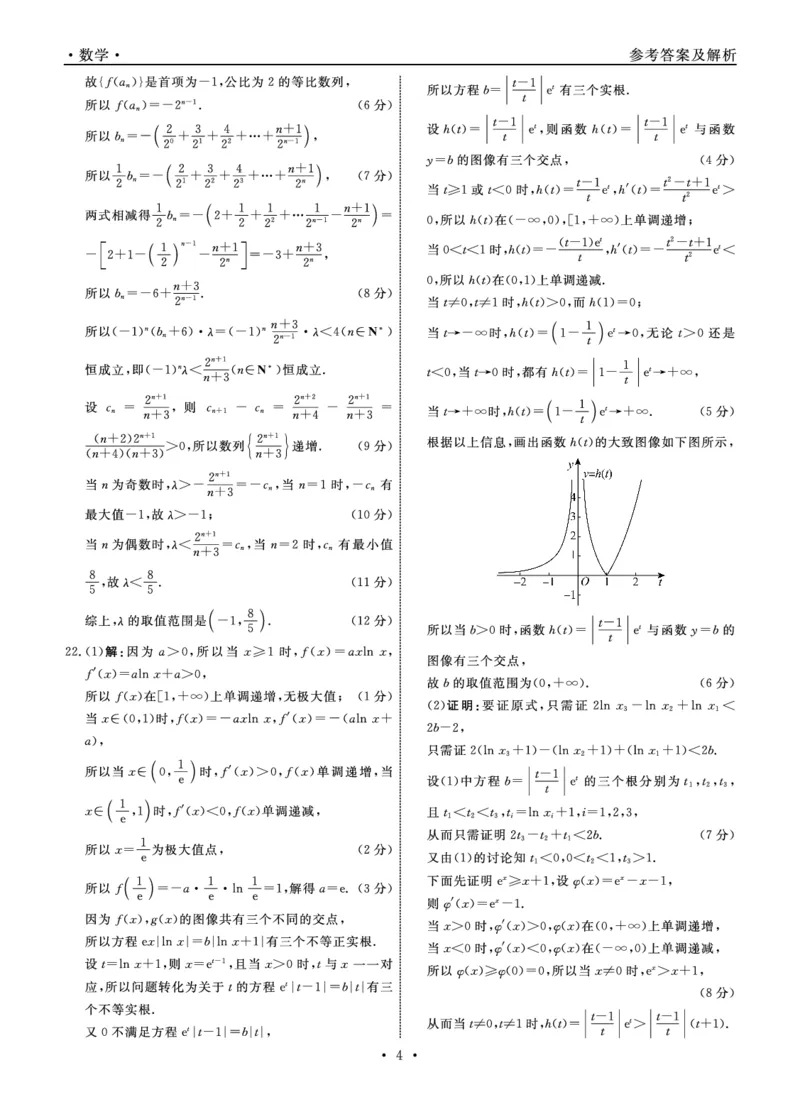 ·数学·
参考答案及解析
故{f(aₙ)}是首项为-1,公比为2的等比数列,
所以 f(aₙ)=-2ⁿ⁻¹. (6分)
所以bₙ=-(2/2⁰+3/2¹+4/2²+…+(n+1)/2ⁿ⁻¹),
所以1/2 bₙ=-(2/2¹+3/2²+4/2³+…+(n+1)/2ⁿ), (7分)
两式相减得1/2 bₙ=-(2+1/2+1/2²+…1/2ⁿ⁻¹-(n+1)/2ⁿ)=
-[2+1-(1/2)ⁿ⁻¹-(n+1)/2ⁿ]=-3+(n+3)/2ⁿ,
所以bₙ=-6+(n+3)/2ⁿ⁻¹. (8分)
所以(-1)ⁿ(bₙ+6)·λ=(-1)ⁿ (n+3)/2ⁿ⁻¹·λ<4(n∈N*)
恒成立,即(-1)ⁿλ<2ⁿ⁺¹/(n+3)(n∈N*)恒成立.
设 cₙ = 2ⁿ⁺¹/(n+3), 则 cₙ₊₁ - cₙ = 2ⁿ⁺²/(n+4) - 2ⁿ⁺¹/(n+3) =
(n+2)2ⁿ⁺¹/((n+4)(n+3))>0,所以数列{2ⁿ⁺¹/(n+3)}递增. (9分)
当n为奇数时,λ>-2ⁿ⁺¹/(n+3)=-cₙ,当n=1时,-cₙ有
最大值-1,故λ>-1; (10分)
当n为偶数时,λ<2ⁿ⁺¹/(n+3)=cₙ,当n=2时,cₙ有最小值
8/5,故λ<8/5. (11分)
综上,λ的取值范围是(-1,8/5). (12分)
22.(1)解:因为a>0,所以当x≥1时,f(x)=axln x,
f′(x)=aln x+a>0,
所以f(x)在[1,+∞)上单调递增,无极大值; (1分)
当x∈(0,1)时,f(x)=-axln x,f′(x)=-(aln x+
a),
所以当x∈(0,1/e)时,f′(x)>0,f(x)单调递增,当
x∈(1/e,1)时,f′(x)<0,f(x)单调递减,
所以x=1/e为极大值点, (2分)
所以f(1/e)=-a·1/e·ln 1/e=1,解得a=e. (3分)
因为f(x),g(x)的图像共有三个不同的交点,
所以方程ex|ln x|=b|ln x+1|有三个不等正实根.
设t=ln x+1,则x=eᵗ⁻¹,且当x>0时,t与x一一对
应,所以问题转化为关于t的方程eᵗ|t-1|=b|t|有三
个不等实根.
又0不满足方程eᵗ|t-1|=b|t|,
所以方程b=|(t-1)/t|eᵗ有三个实根.
设h(t)=|(t-1)/t|eᵗ,则函数h(t)=|(t-1)/t|eᵗ与函数
y=b的图像有三个交点, (4分)
当t≥1或t<0时,h(t)=(t-1)/t eᵗ,h′(t)=(t²-t+1)/t² eᵗ>
0,所以h(t)在(-∞,0),[1,+∞)上单调递增;
当0<t<1时,h(t)=-(t-1)eᵗ/t,h′(t)=-(t²-t+1)/t² eᵗ<
0,所以h(t)在(0,1)上单调递减.
当t≠0,t≠1时,h(t)>0,而h(1)=0;
当t→-∞时,h(t)=(1-1/t)eᵗ→0,无论t>0还是
t<0,当t→0时,都有h(t)=|1-1/t|eᵗ→+∞,
当t→+∞时,h(t)=(1-1/t)eᵗ→+∞. (5分)
根据以上信息,画出函数h(t)的大致图像如下图所示,
y
y=h(t)
4
3
2
1
-2 -1 O 1 2 t
-1
所以当b>0时,函数h(t)=|(t-1)/t|eᵗ与函数y=b的
图像有三个交点,
故b的取值范围为(0,+∞). (6分)
(2)证明:要证原式,只需证 2ln x₃-ln x₂+ln x₁<
2b-2,
只需证2(ln x₃+1)-(ln x₂+1)+(ln x₁+1)<2b.
设(1)中方程b=|(t-1)/t|eᵗ的三个根分别为t₁,t₂,t₃,
且t₁<t₂<t₃,tᵢ=ln xᵢ+1,i=1,2,3,
从而只需证明2t₃-t₂+t₁<2b. (7分)
又由(1)的讨论知t₁<0,0<t₂<1,t₃>1.
下面先证明eˣ≥x+1,设φ(x)=eˣ-x-1,
则φ′(x)=eˣ-1.
当x>0时,φ′(x)>0,φ(x)在(0,+∞)上单调递增,
当x<0时,φ′(x)<0,φ(x)在(-∞,0)上单调递减,
所以φ(x)≥φ(0)=0,所以当x≠0时,eˣ>x+1,
(8分)
从而当t≠0,t≠1时,h(t)=|(t-1)/t|eᵗ>|(t-1)/t|(t+1).
· 4 ·